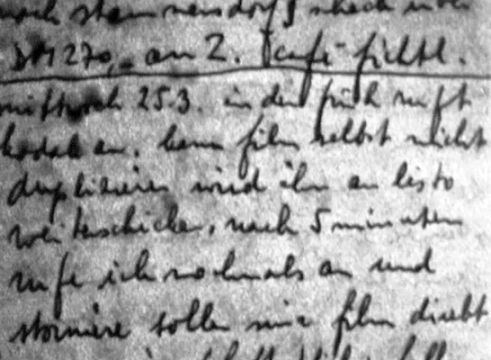 noch stammersdorf, scheck über
DM 270,- an Z. fichtl.
mittwoch 25.3. in der früh ruft
kodak an. kann film selbst nicht
duplizieren wird ihn an listo
weiterschicken, nach 5 minuten
rufe ich nochmals an und
storniere sollen mir film direkt